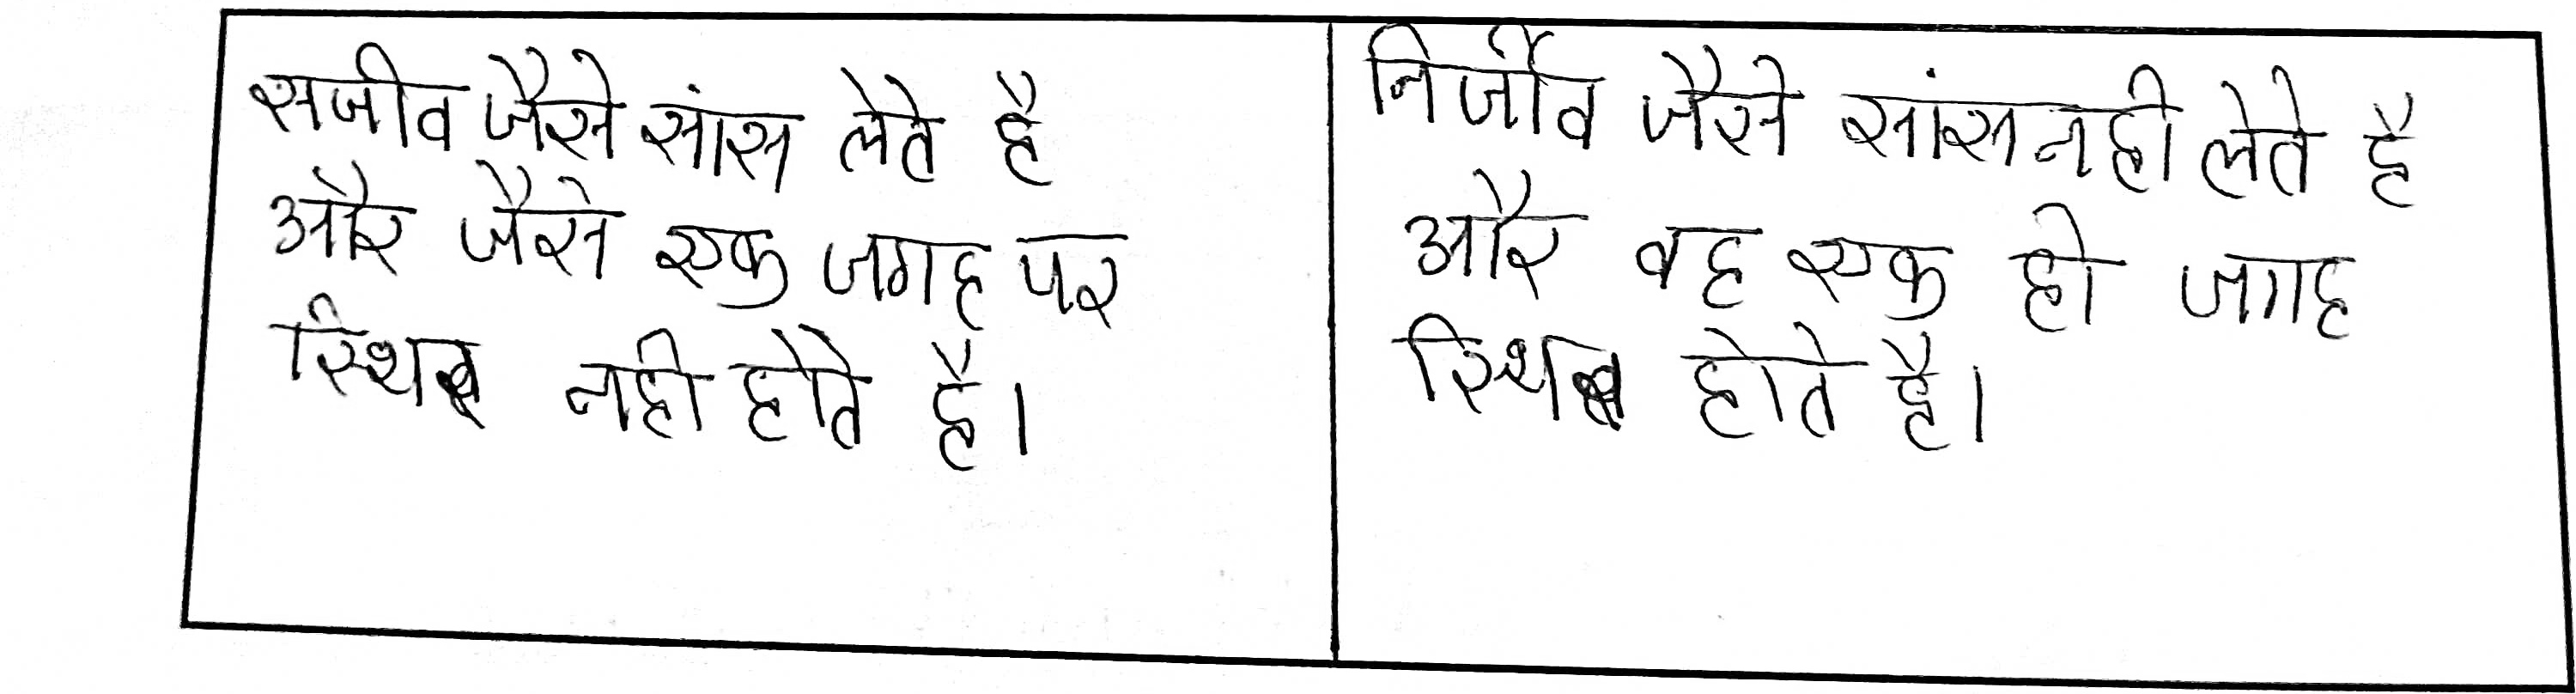 सजीव जैसे सांस लेते है
और जैसे एक जगह पर
स्थिर नही होते है।
निर्जीव जैसे सांस नही लेते है
और वह एक ही जगह
स्थिर होते है।